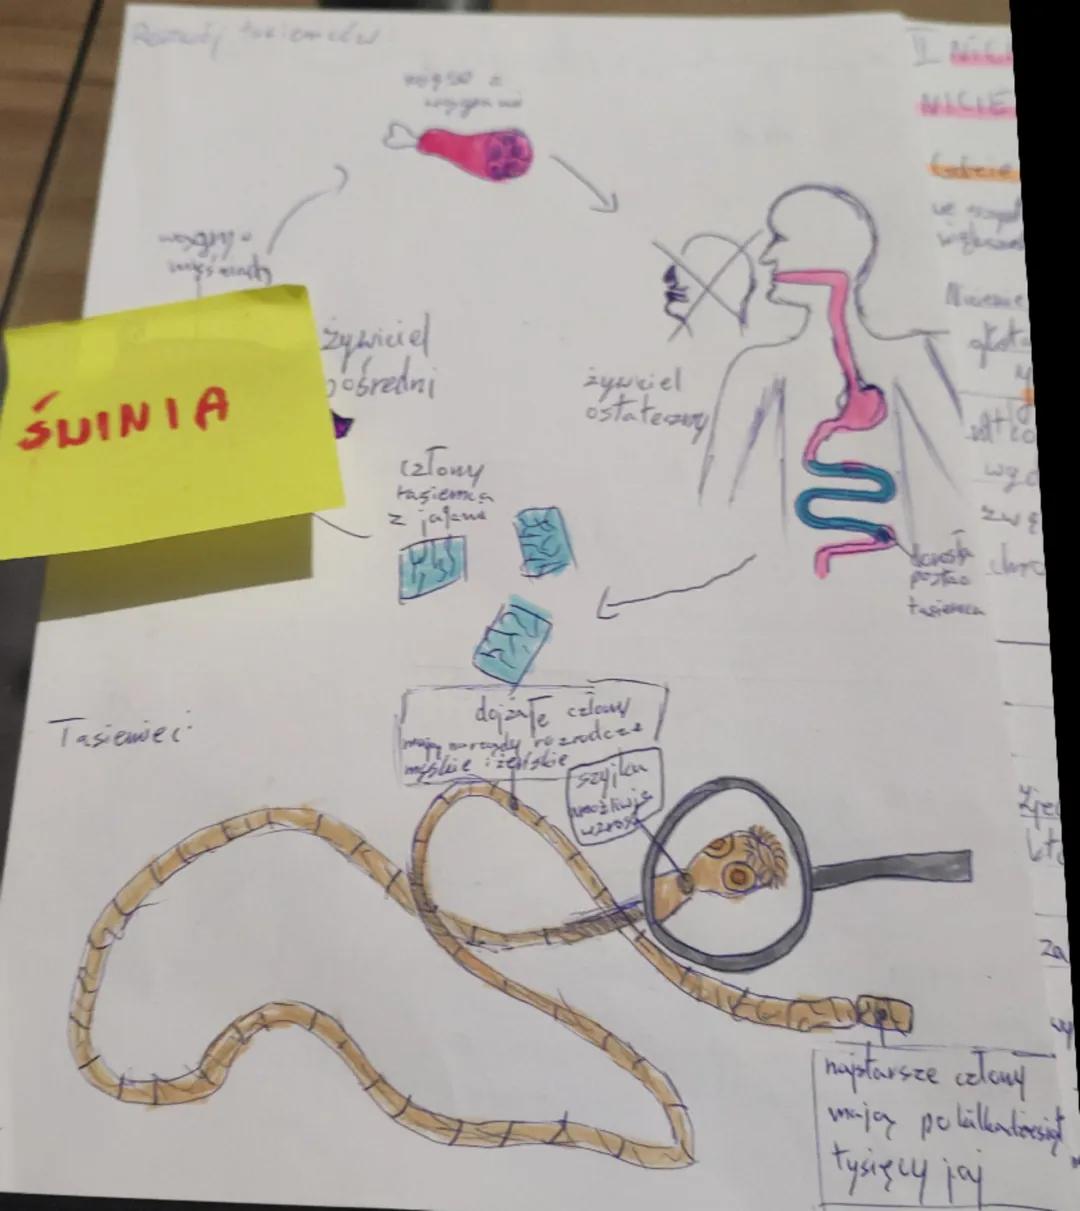 Rozwój tasiemców
mięso z
wągrami
wągry w
mięśniach
żywiciel
pośredni
ŚWINIA
żywiciel
ostateczny
człony
tasiemca
z jajami
dorosła
postać
tasiemca
Tasiemiec:
dojżałe człony
mają narządy rozrodcze
męskie i żeńskie
szyjka
umożliwia
wzrost
najstarsze człony
mają po kilkadziesiąt
tysięcy jaj
II
NICIE
Gdzie
Nicienie
wyd
zwę
za
wy